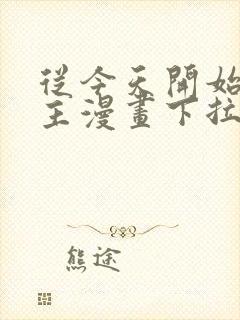 從今天開始
主漫畫下拉
熊途